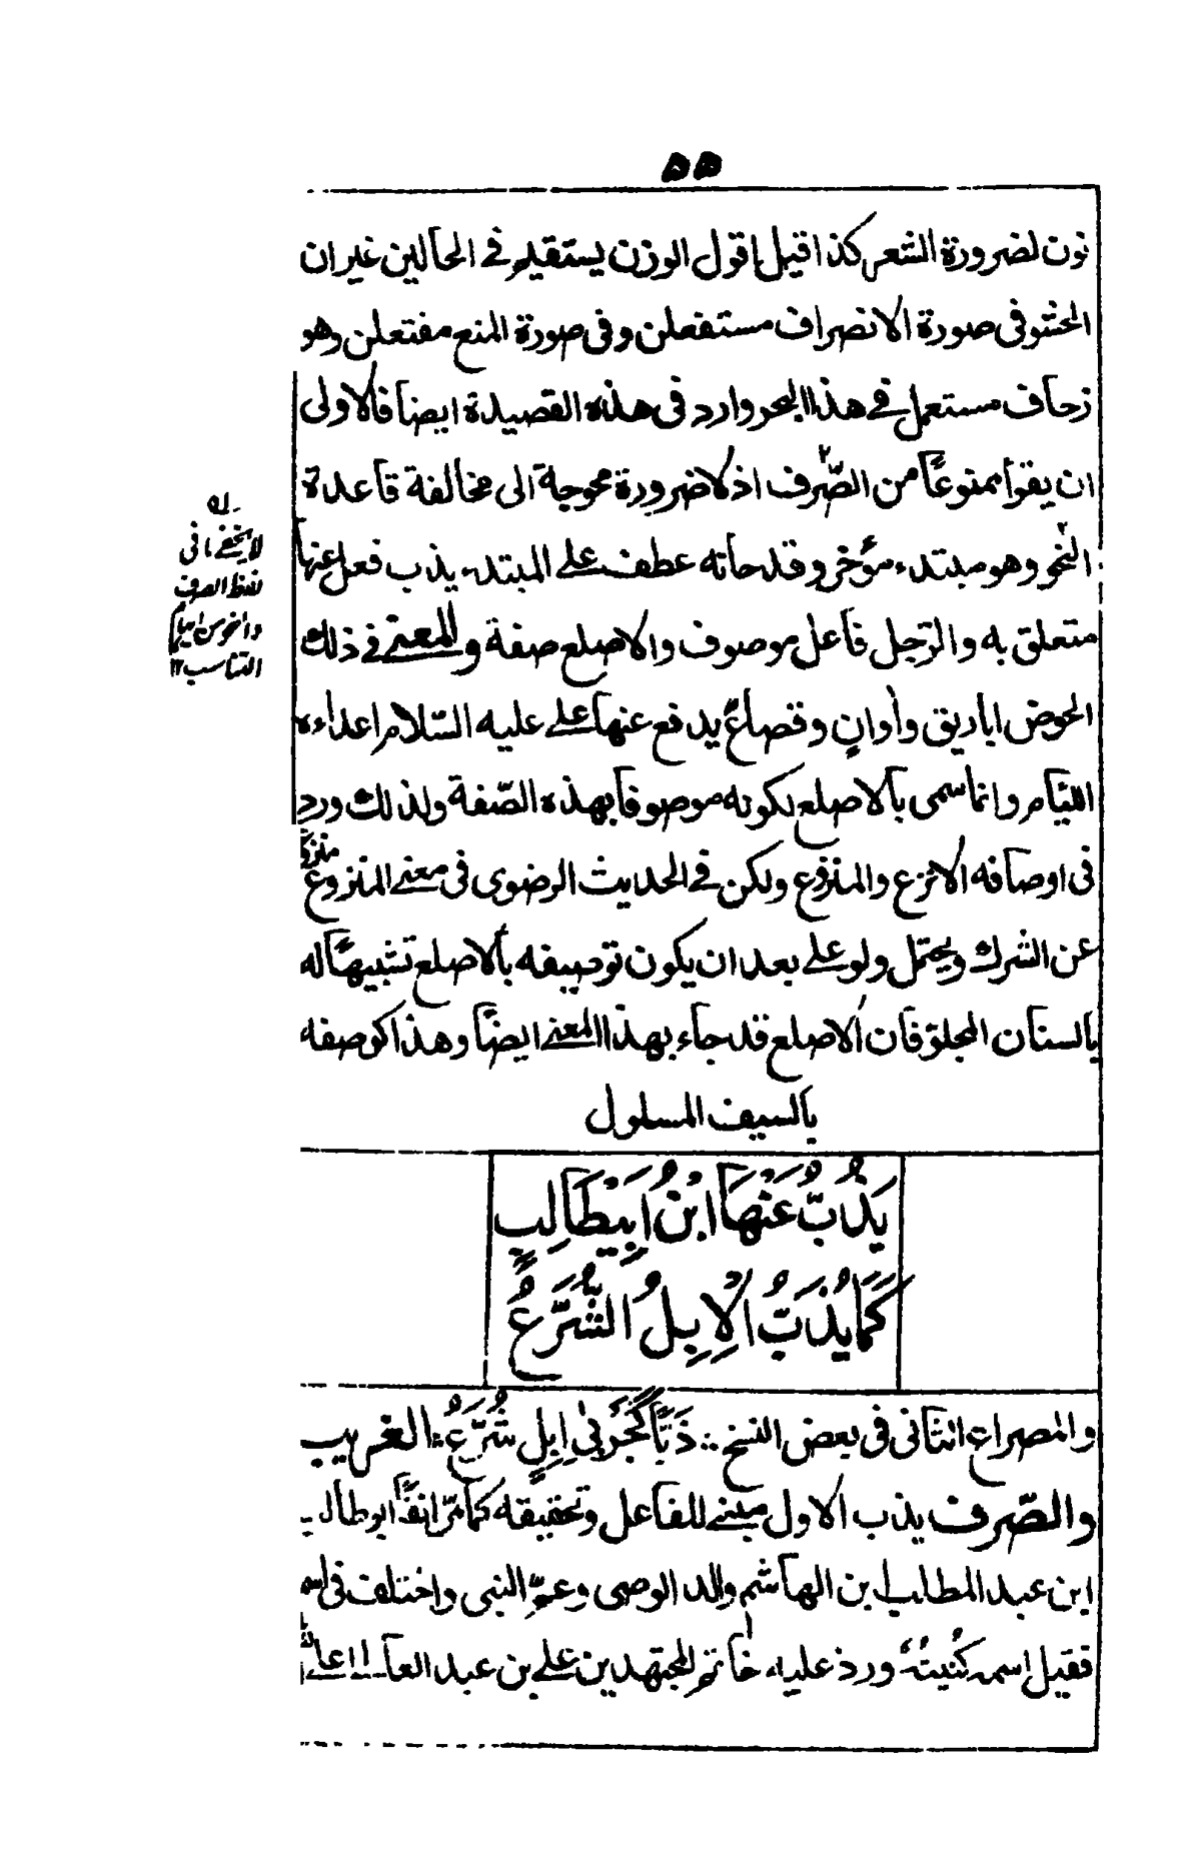 ٥٥
نون لضرورة الشعر كذا قيل اقول الوزن يستقيم في الحالين غيران
الحشو في صورة الانصراف مستفعلن وفي صورة المنع مفتعلن وهو
زحاف مستعمل في هذا البحر وارد في هذه القصيدة ايضا فالاولى
ان يقرأ ممنوعًا من الصّرف اذ لا ضرورة محوجة الى مخالفة قاعدة
النحو وهو مبتدء مؤخر وقدحانه عطف على المبتدء يذب فعل عنها
متعلق به والرّجل فاعل موصوف والاصلع صفة والمعنى في ذلك
الحوض اباريق وأوانٍ وقصاعٌ يدفع عنها على عليه السّلام اعداءه
اللئام وانما سمى بالاصلع لكونه موصوفا بهذه الصّفة ولذلك ورد
في اوصافه الانزع والمنزوع ولكن في الحديث الرضوى في معنى المنزوع
منزوع
عن الشرك ويحتمل ولو على بعد ان يكون توصيفه بالاصلع تشبيهًا له
بالسنان المجلو فان الاصلع قد جاء بهذا المعنى ايضًا وهذا كوصفه
بالسيف المسلول
يَذُبُّ عَنْهَا ابْنُ ابِيْطَالِبٍ
كَمَا يُذَبُّ الْاِبِلُ الشُّرَّعُ
والمصراع الثانى في بعض النسخ ذَبًّا كَجُرْبٰى اِبِلٍ شُرَّعُ الغريب
والصّرف يذب الاول مبنى للفاعل وتحقيقه كما مرّ انفًا ابو طالب
ابن عبد المطلب ابن الهاشم والد الوصى وعمّ النبى واختلف في اسم
فقيل اسمه كُنيتُه ورد عليه خاتم المجتهدين على بن عبد العالى
لا يخفى ما في
لفظ الصرف
والنحو من ايهام
التناسب ١٢